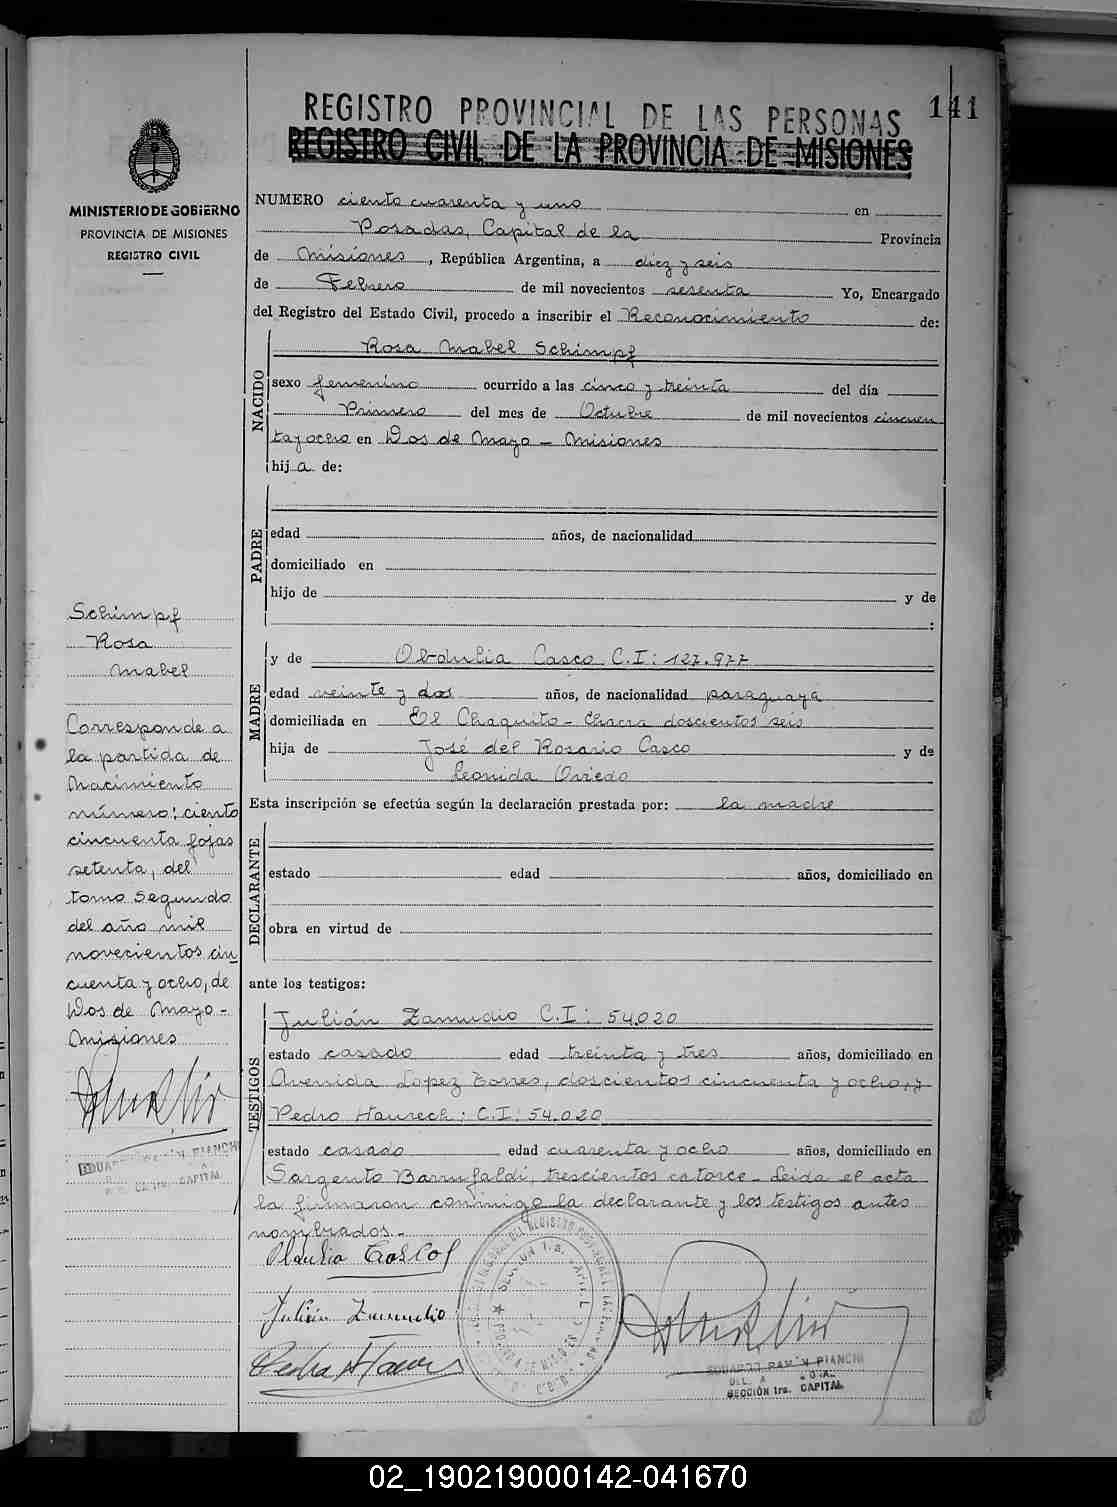 141
REGISTRO PROVINCIAL DE LAS PERSONAS
REGISTRO CIVIL DE LA PROVINCIA DE MISIONES
MINISTERIO DE GOBIERNO
PROVINCIA DE MISIONES
REGISTRO CIVIL
NUMERO ciento cuarenta y uno en
Posadas, Capital de la Provincia
de Misiones, República Argentina, a diez y seis
de Febrero de mil novecientos sesenta Yo, Encargado
del Registro del Estado Civil, procedo a inscribir el Reconocimiento de:
NACIDO
Rosa Mabel Schimpf
sexo femenino ocurrido a las cinco y treinta del día
Primero del mes de Octubre de mil novecientos cincuen
ta y ocho en Dos de Mayo - Misiones
hija de:
PADRE
edad años, de nacionalidad
domiciliado en
hijo de y de
:
MADRE
y de Obdulia Casco C.I: 127.977
edad veinte y dos años, de nacionalidad paraguaya
domiciliada en El Chaquito - Chacra doscientos seis
hija de José del Rosario Casco y de
Leonida Oviedo
Esta inscripción se efectúa según la declaración prestada por: la madre
DECLARANTE
estado edad años, domiciliado en
obra en virtud de
ante los testigos:
TESTIGOS
Julián Zamudio C.I: 54.020
estado casado edad treinta y tres años, domiciliado en
Avenida Lopez Torres, doscientos cincuenta y ocho, y
Pedro Haurech: C.I: 54.020
estado casado edad cuarenta y ocho años, domiciliado en
Sargento Barrufaldi, trescientos catorce. Leida el acta
la firmaron conmigo la declarante y los testigos antes
nombrados.-
Julián Zamudio
EDUARDO RAMÓN BIANCHI
SECCIÓN 1ra. CAPITAL
Schimpf
Rosa
Mabel
Corresponde a
la partida de
Nacimiento
número: ciento
cincuenta fojas
setenta, del
tomo segundo
del año mil
novecientos cin
cuenta y ocho, de
Dos de Mayo -
Misiones
02_190219000142-041670